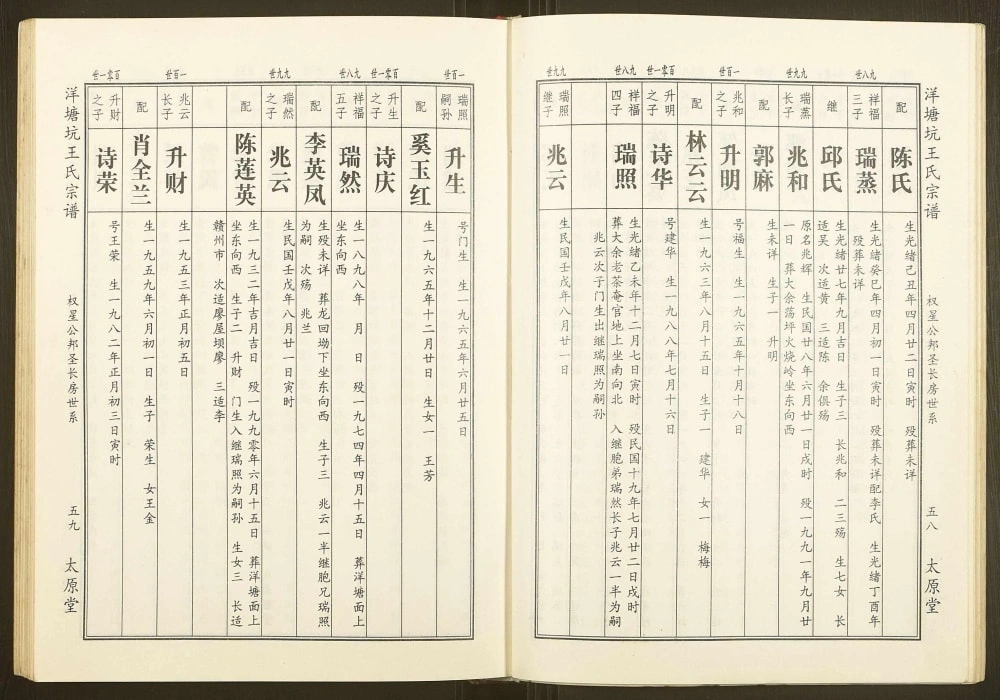 洋塘坑王氏宗谱
权星公邦圣长房世系
五八
太原堂
配
陈氏
生光绪己丑年四月廿二日寅时 殁葬未详
九八世
祥福
三子
瑞蒸
生光绪癸巳年四月初一日寅时 殁葬未详配李氏 生光绪丁酉年
殁葬未详
继
邱氏
生光绪廿七年九月吉日 生子三 长兆和 二三殇 生七女 长
适吴 次适黄 三适陈 余俱殇
九九世
瑞蒸
长子
兆和
原名兆辉 生民国廿八年六月廿一日戌时 殁一九九一年九月廿
一日 葬大余荡坪火烧岭坐东向西
配
郭麻
生未详 生子一 升明
一百世
兆和
之子
升明
号福生 生一九六五年十月十八日
配
林云云
生一九六三年八月十五日 生子一 建华 女一 梅梅
百零一世
升明
之子
诗华
号建华 生一九八八年七月十六日
九八世
祥福
四子
瑞照
生光绪乙未年十二月七日寅时 殁民国十九年七月廿二日戌时
葬大余老茶庵官地上坐南向北 入继胞弟瑞然长子兆云一半为嗣
兆云次子门生出继瑞照为嗣孙
九九世
瑞照
继子
兆云
生民国壬戌年八月廿一日
一百世
瑞照
嗣孙
升生
号门生 生一九六五年六月廿五日
配
奚玉红
生一九六五年十二月廿日 生女一 王芳
百零一世
升生
之子
诗庆
九八世
祥福
五子
瑞然
生一八九八年 月 日 殁一九七四年四月十五日 葬洋塘面上
坐东向西
配
李英凤
生殁未详 葬龙回坳下坐东向西 生子三 兆云一半继胞兄瑞照
为嗣 次殇 兆兰
九九世
瑞然
之子
兆云
生民国壬戌年八月廿一日寅时
配
陈莲英
生一九三二年吉月吉日 殁一九九零年六月十五日 葬洋塘面上
坐东向西 生子二 升财 门生入继瑞照为嗣孙 生女三 长适
赣州市 次适廖屋坝廖 三适李
一百世
兆云
长子
升财
生一九五三年正月初五日
配
肖全兰
生一九五九年六月初一日 生子 荣生 女王金
百零一世
升财
之子
诗荣
号王荣 生一九八二年正月初三日寅时
洋塘坑王氏宗谱
权星公邦圣长房世系
五九
太原堂